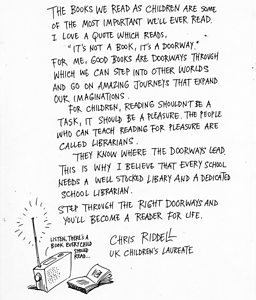 THE BOOKS WE READ AS CHILDREN ARE SOME
OF THE MOST IMPORTANT WE'LL EVER READ.
I LOVE A QUOTE WHICH READS,
"IT'S NOT A BOOK, IT'S A DOORWAY."
FOR ME, GOOD BOOKS ARE DOORWAYS THROUGH
WHICH WE CAN STEP INTO OTHER WORLDS
AND GO ON AMAZING JOURNEYS THAT EXPAND
OUR IMAGINATIONS.
FOR CHILDREN, READING SHOULDN'T BE A
TASK, IT SHOULD BE A PLEASURE. THE PEOPLE
WHO CAN TEACH READING FOR PLEASURE ARE
CALLED LIBRARIANS.
THEY KNOW WHERE THE DOORWAYS LEAD.
THIS IS WHY I BELIEVE THAT EVERY SCHOOL
NEEDS A WELL STOCKED LIBARY AND A DEDICATED
SCHOOL LIBRARIAN.
STEP THROUGH THE RIGHT DOORWAYS AND
YOU'LL BECOME A READER FOR LIFE.
CHRIS RIDDELL
UK CHILDREN'S LAUREATE
LISTEN, THERE'S A
BOOK EVERY CHILD
SHOULD
READ...